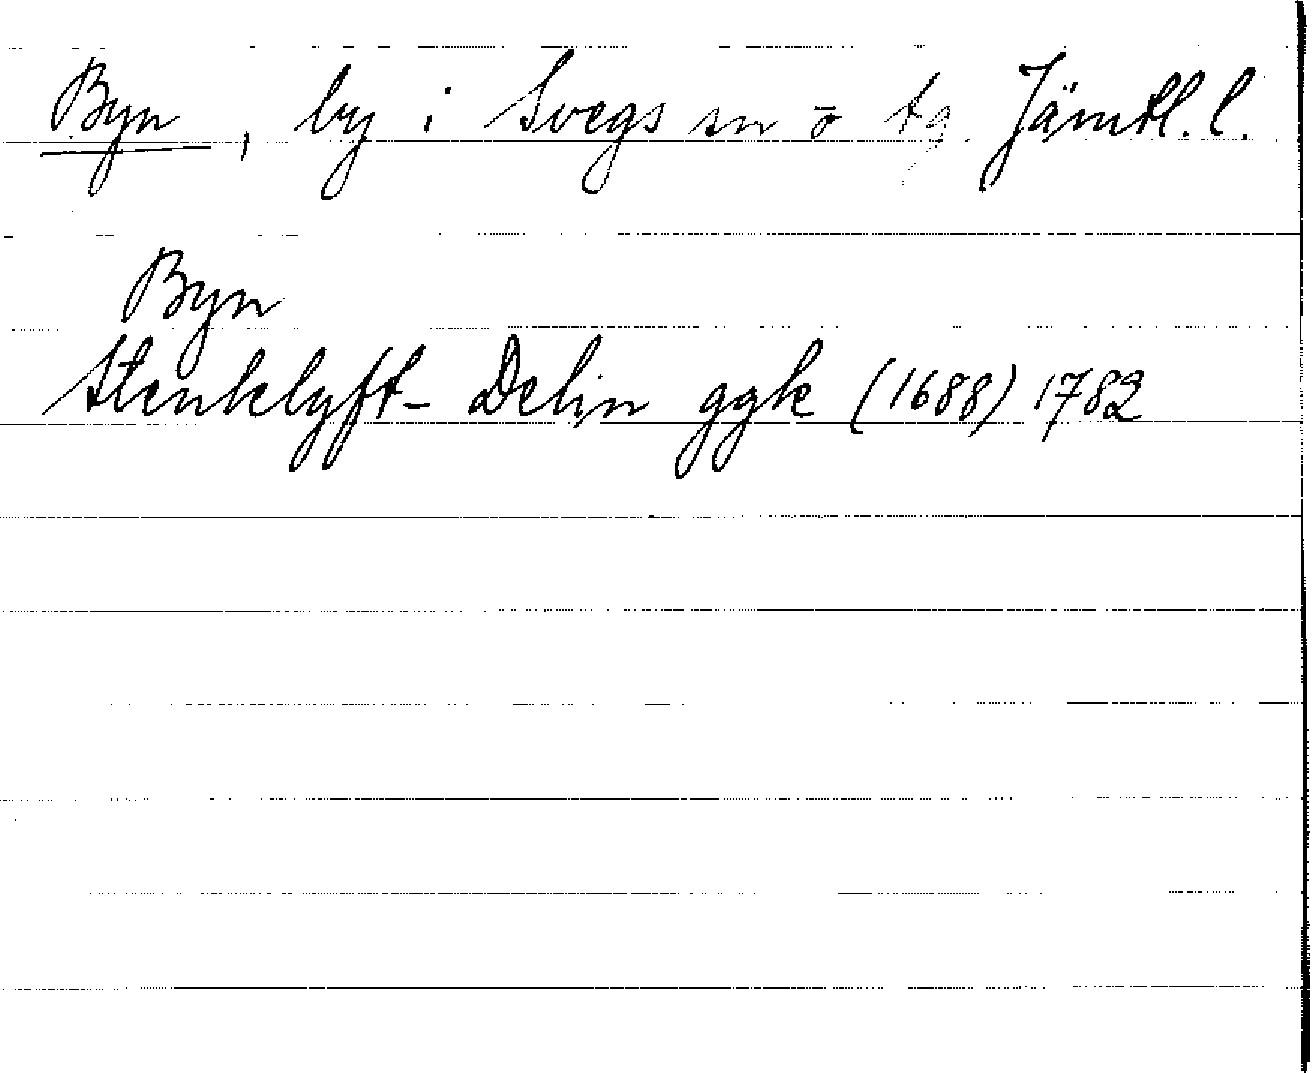 Byn, by i Svegs sn o tg. Jämtl. l.
Byn
Stenklyft- Delin ggk (1688) 1782